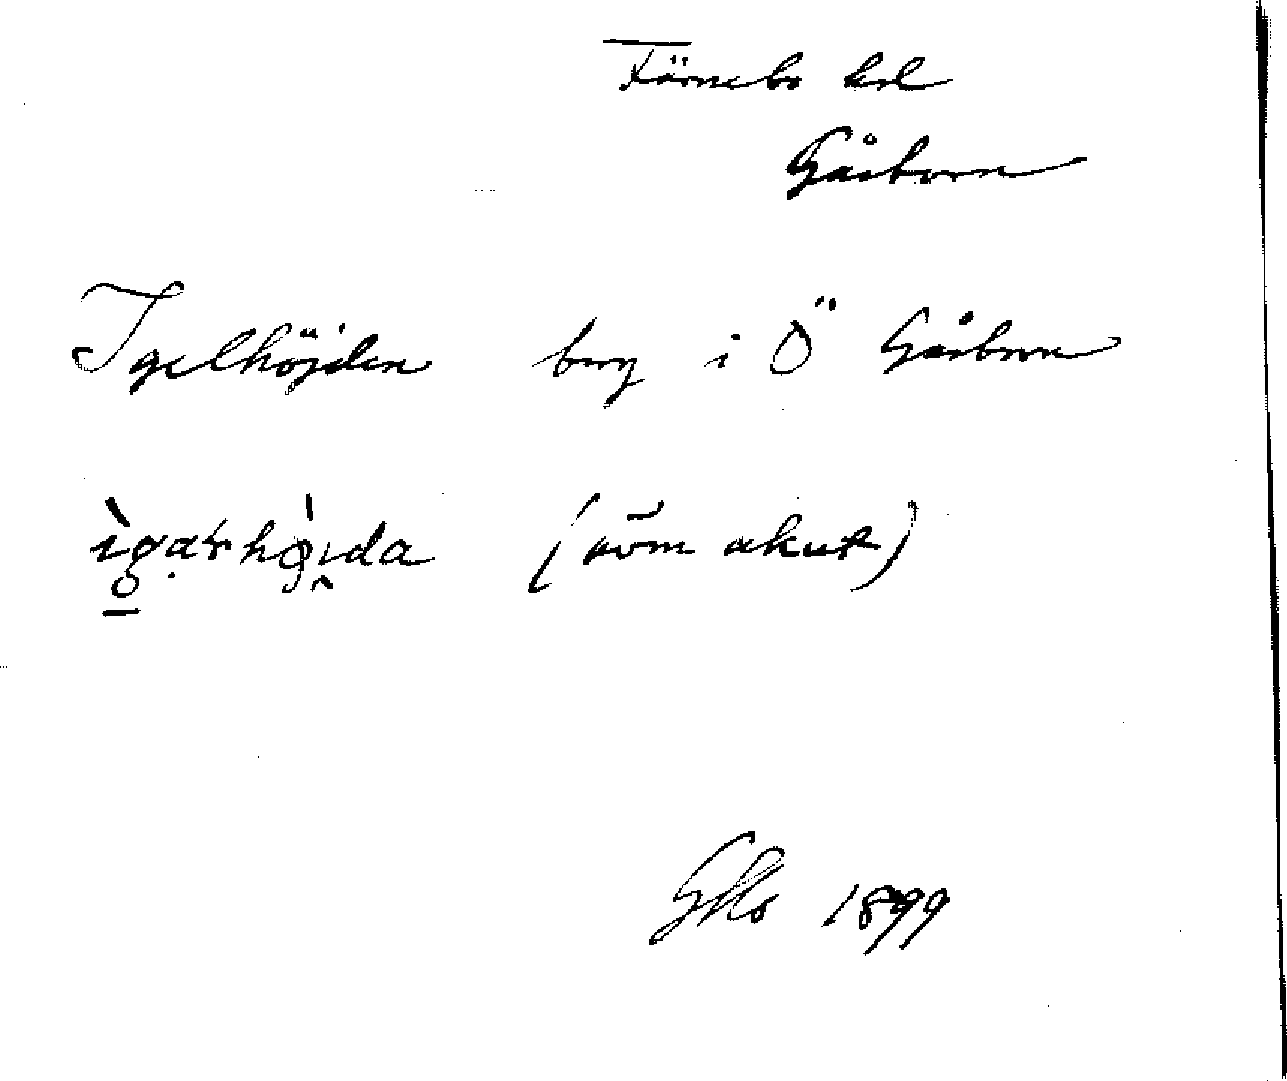 Färnebo hd
Gåsborn
Igelhöjden berg i Ö Gåsborn
ìgaɽhòjda (även akut)
1899